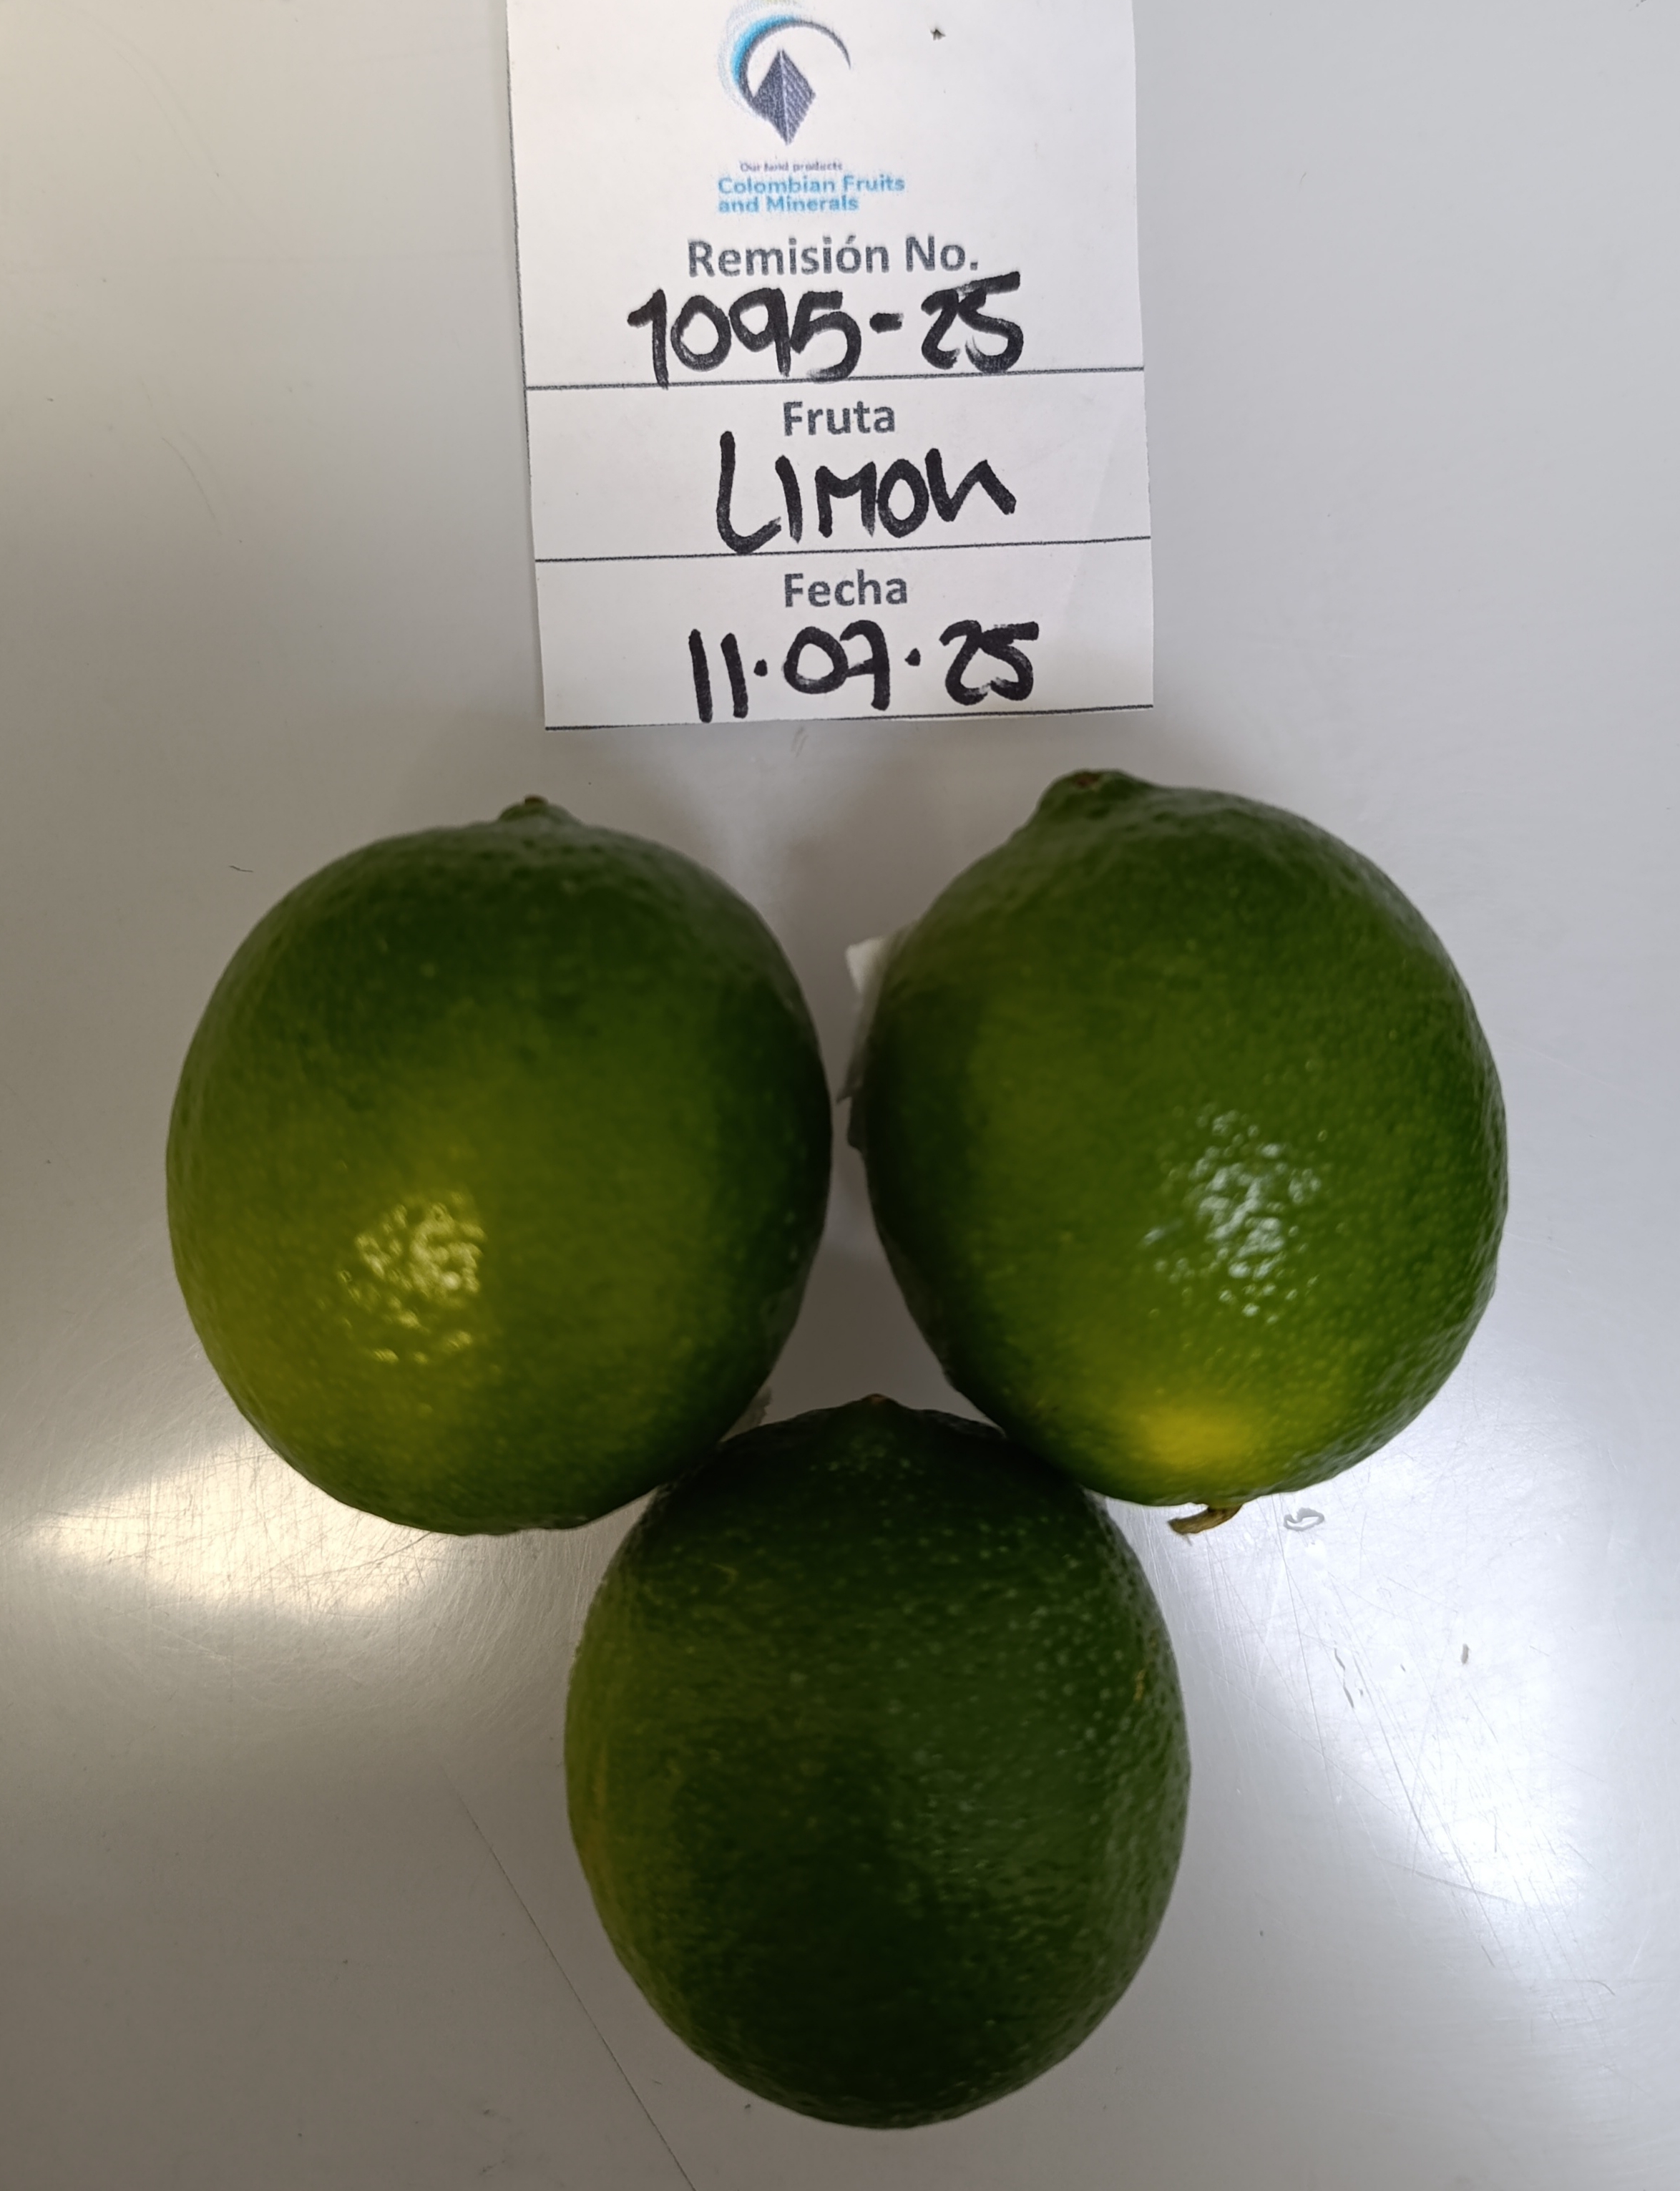 Our land products
Colombian Fruits
and Minerals
Remisión No.
1095-25
Fruta
LIMON
Fecha
11.07.25